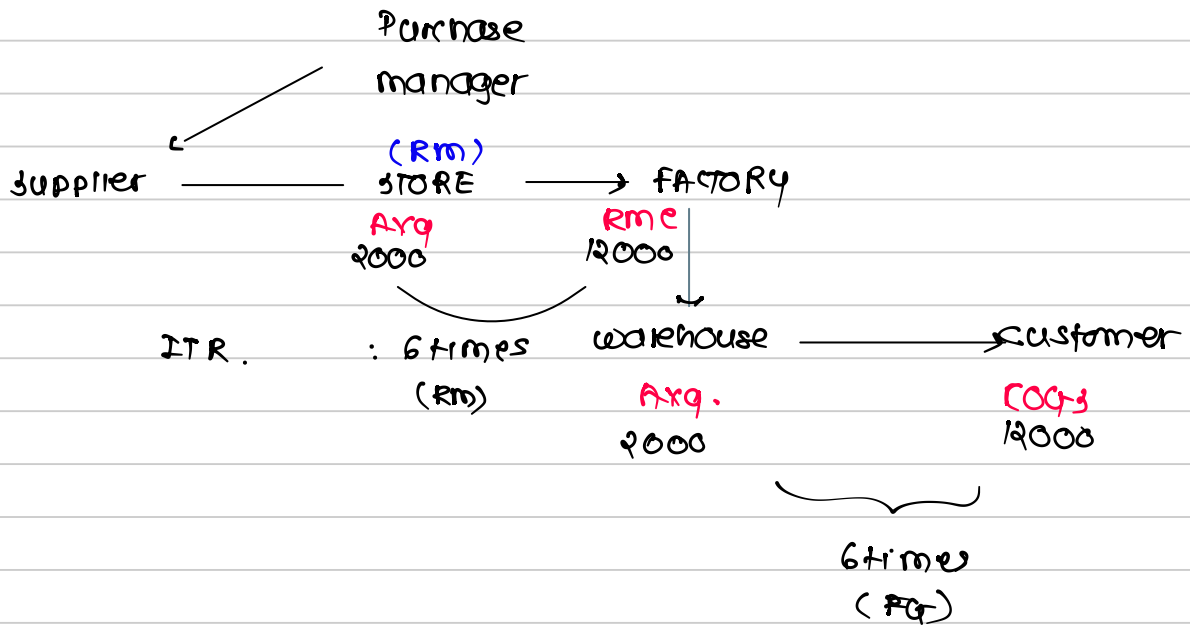 Purchase
manager
(RM)
supplier STORE FACTORY
Avg RMC
2000 12000
ITR. : 6 times warehouse customer
(RM) Avg. COGS
2000 12000
6 times
(FG)